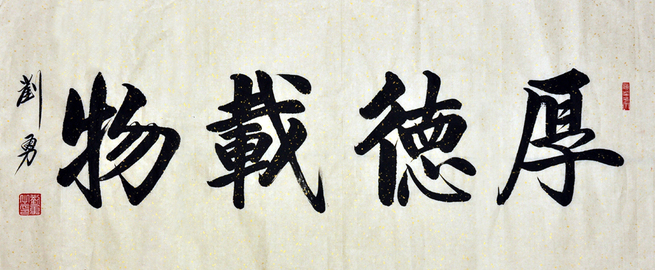 厚德載物
劉勇